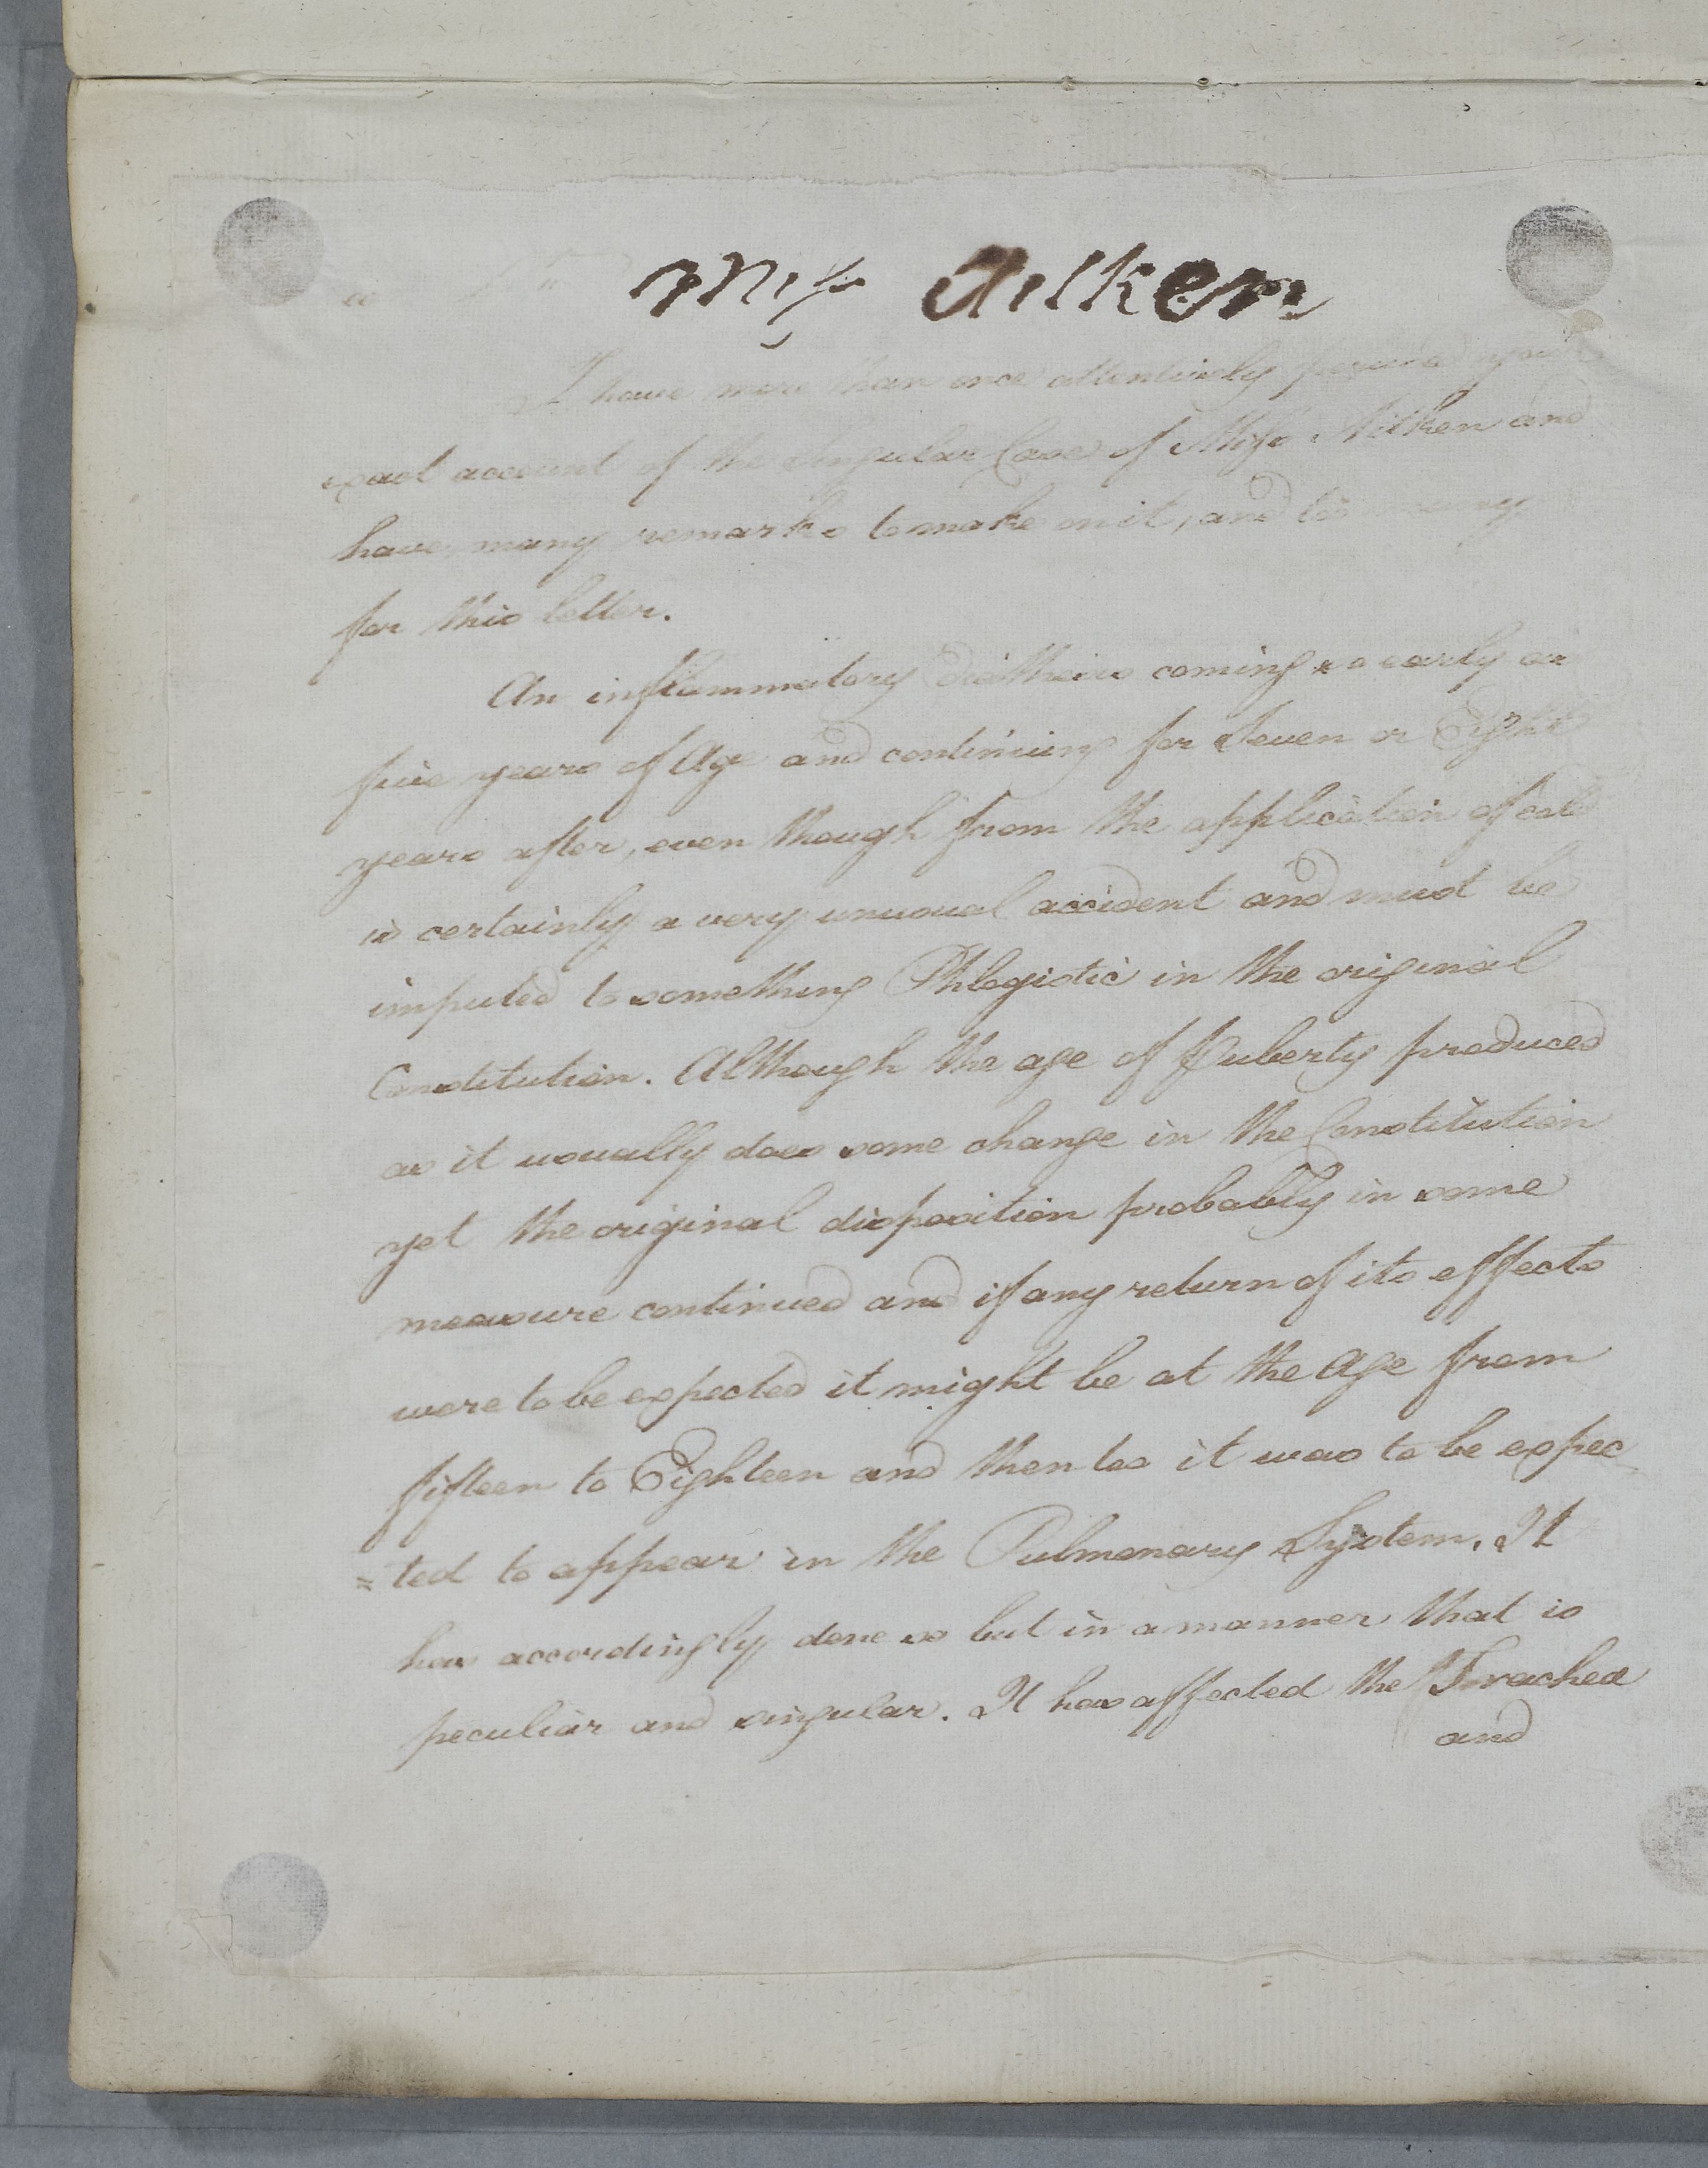 Miss Aitken
I have more than once attentively perused your
exact account of the Singular Case of Miss Aitken and
have many remarks to make on it, and too many
for this letter.
An inflammatory diathesis coming so early as
five years of Age and continuing for Seven or Eight
years after, even though from the application of cold
is certainly a very unusual accident and must be
imputed to something Phlogistic in the original
Constitution. Although the age of puberty produced
as it usually does some change in the Constitution
yet the original disposition probably in some
measure continued and if any return of its effects
were to be expected it might be at the Age from
fifteen to Eighteen and then too it was to be expec
= ted to appear in the Pulmonary System. It
has accordingly done so but in a manner that is
peculiar and singular. It has affected the Trachea
and